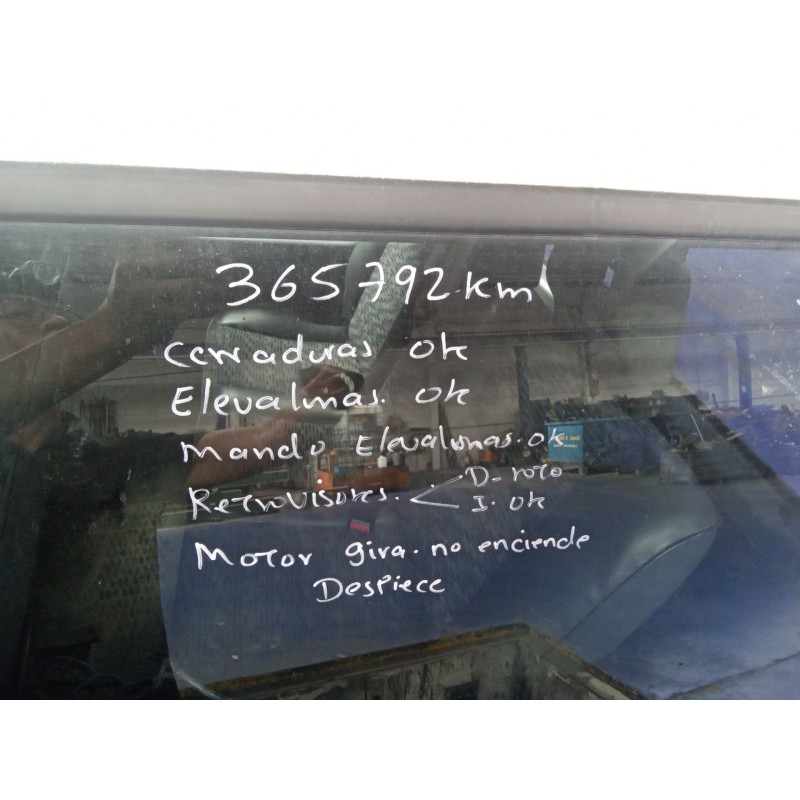 365792 km
Cerraduras ok
Elevalunas. ok
Mando Elevalunas. ok
Retrovisores. D- roto
I. ok
Motor gira. no enciende
Despiece